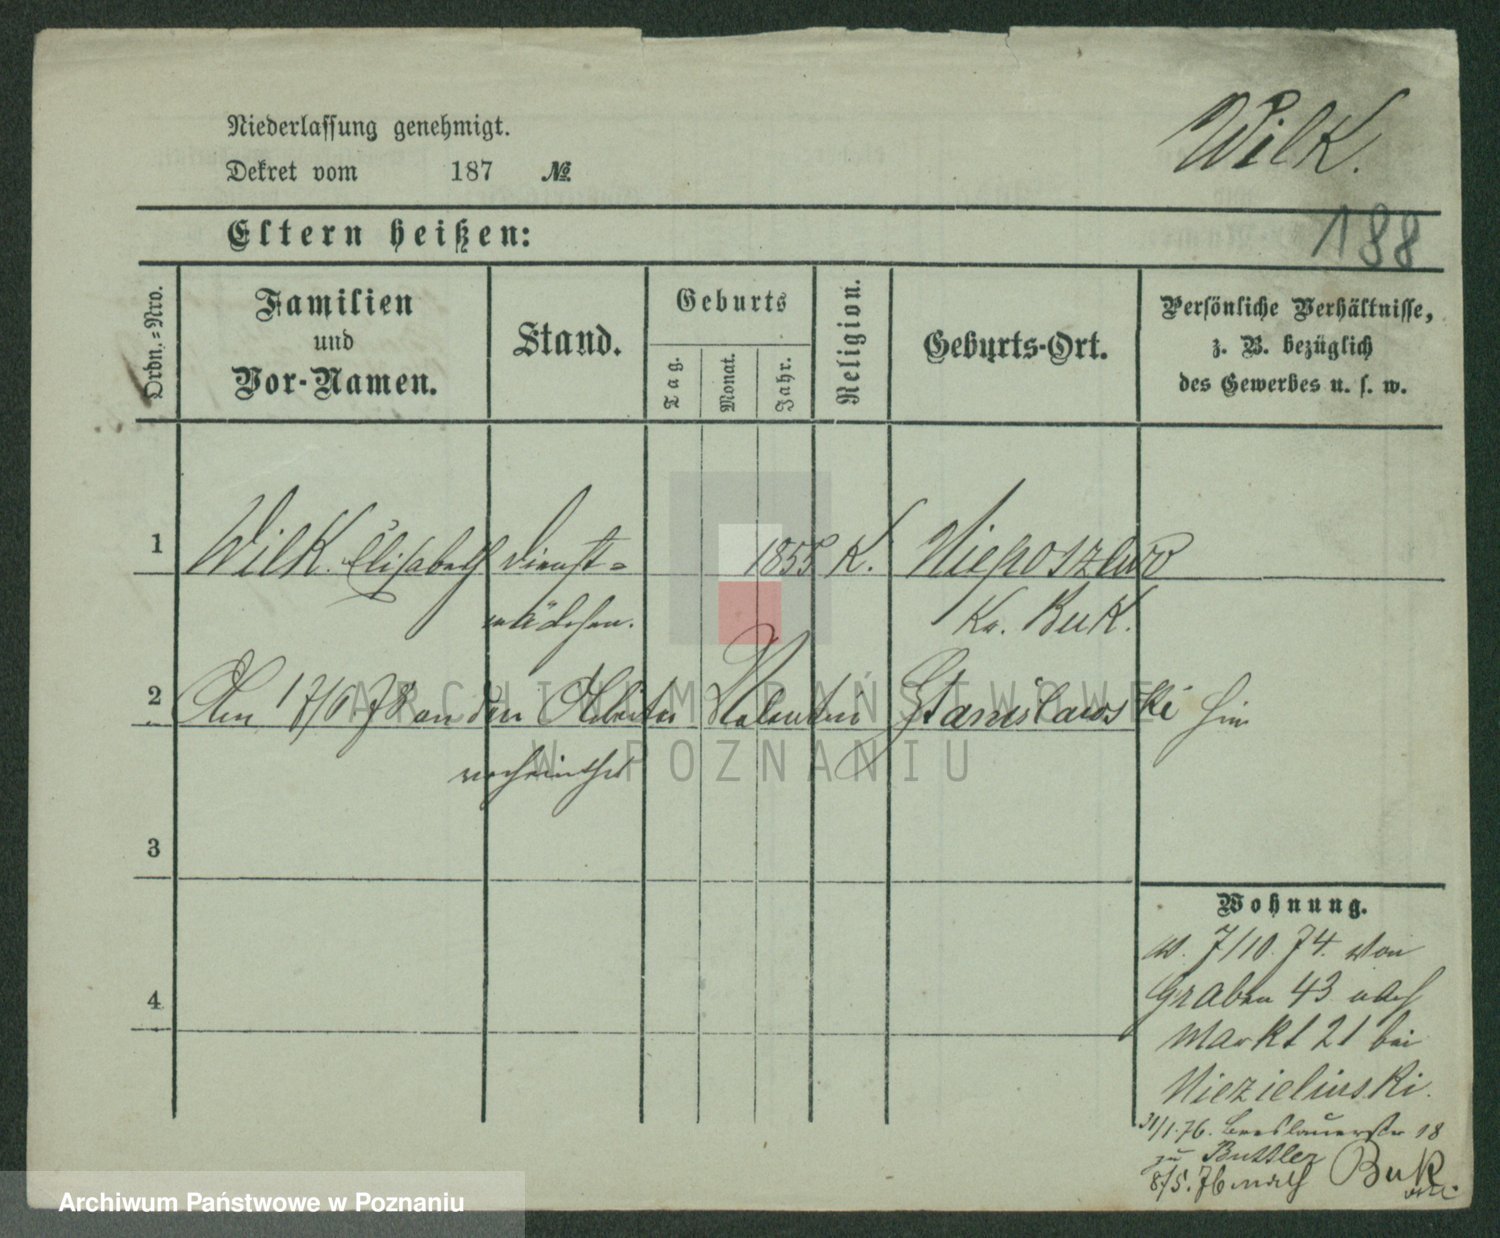 Wilk.
Niederlassung genehmigt.
Dekret vom 187 №
188
Eltern heißen:
Ordn.-Nro.
Familien und Vor-Namen.
Stand.
Geburts
Tag.
Monat.
Jahr.
Religion.
Geburts-Ort.
Persönliche Verhältnisse,
z. B. bezüglich
des Gewerbes u. s. w.
1 Wilk. Elisabeth Dienst= 1855 K. Niegoszewo
mädchen. Kr. Buk.
2 Am 17/6 78 an den Arbeiter Valentin Stanislawski hier
verheirathet
3
4
Wohnung.
w. 7/10. 74. von
Graben 43 nach
Markt 21 bei
Niezielinski.
31/1.76. Breslauerstr 18
zu Buttler
8/5. 76 nach Buk
ARCHIWUM PAŃSTWOWE
W POZNANIU
Archiwum Państwowe w Poznaniu